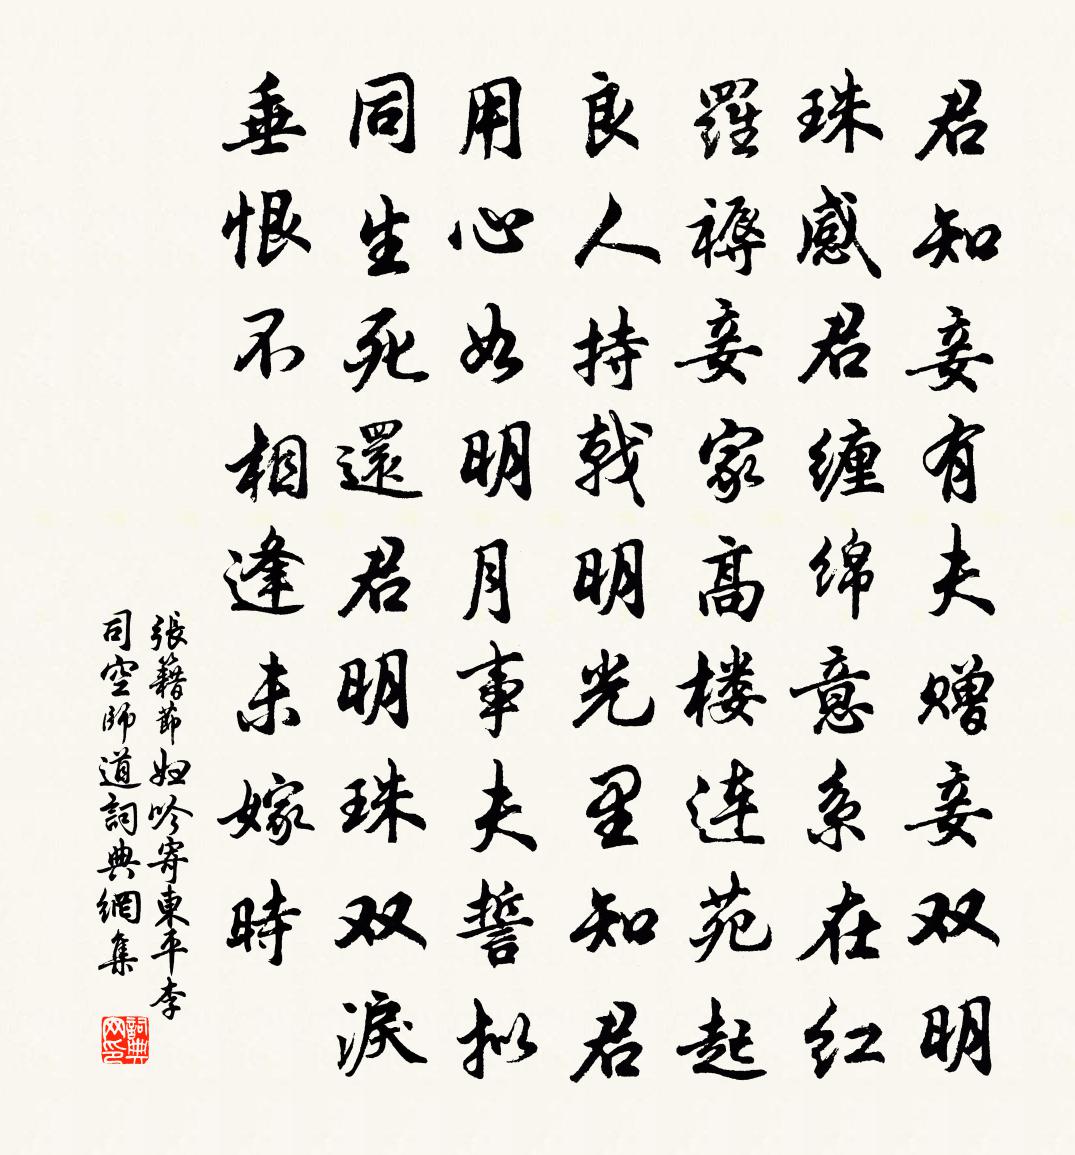 君知妾有夫赠妾双明
珠感君缠绵意系在红
羅襦妾家髙楼连苑起
良人持戟明光里知君
用心如明月事夫誓拟
同生死還君明珠双淚
垂恨不相逢未嫁時
張籍節妇吟寄東平李
司空師道詞典網集
詞典
网印